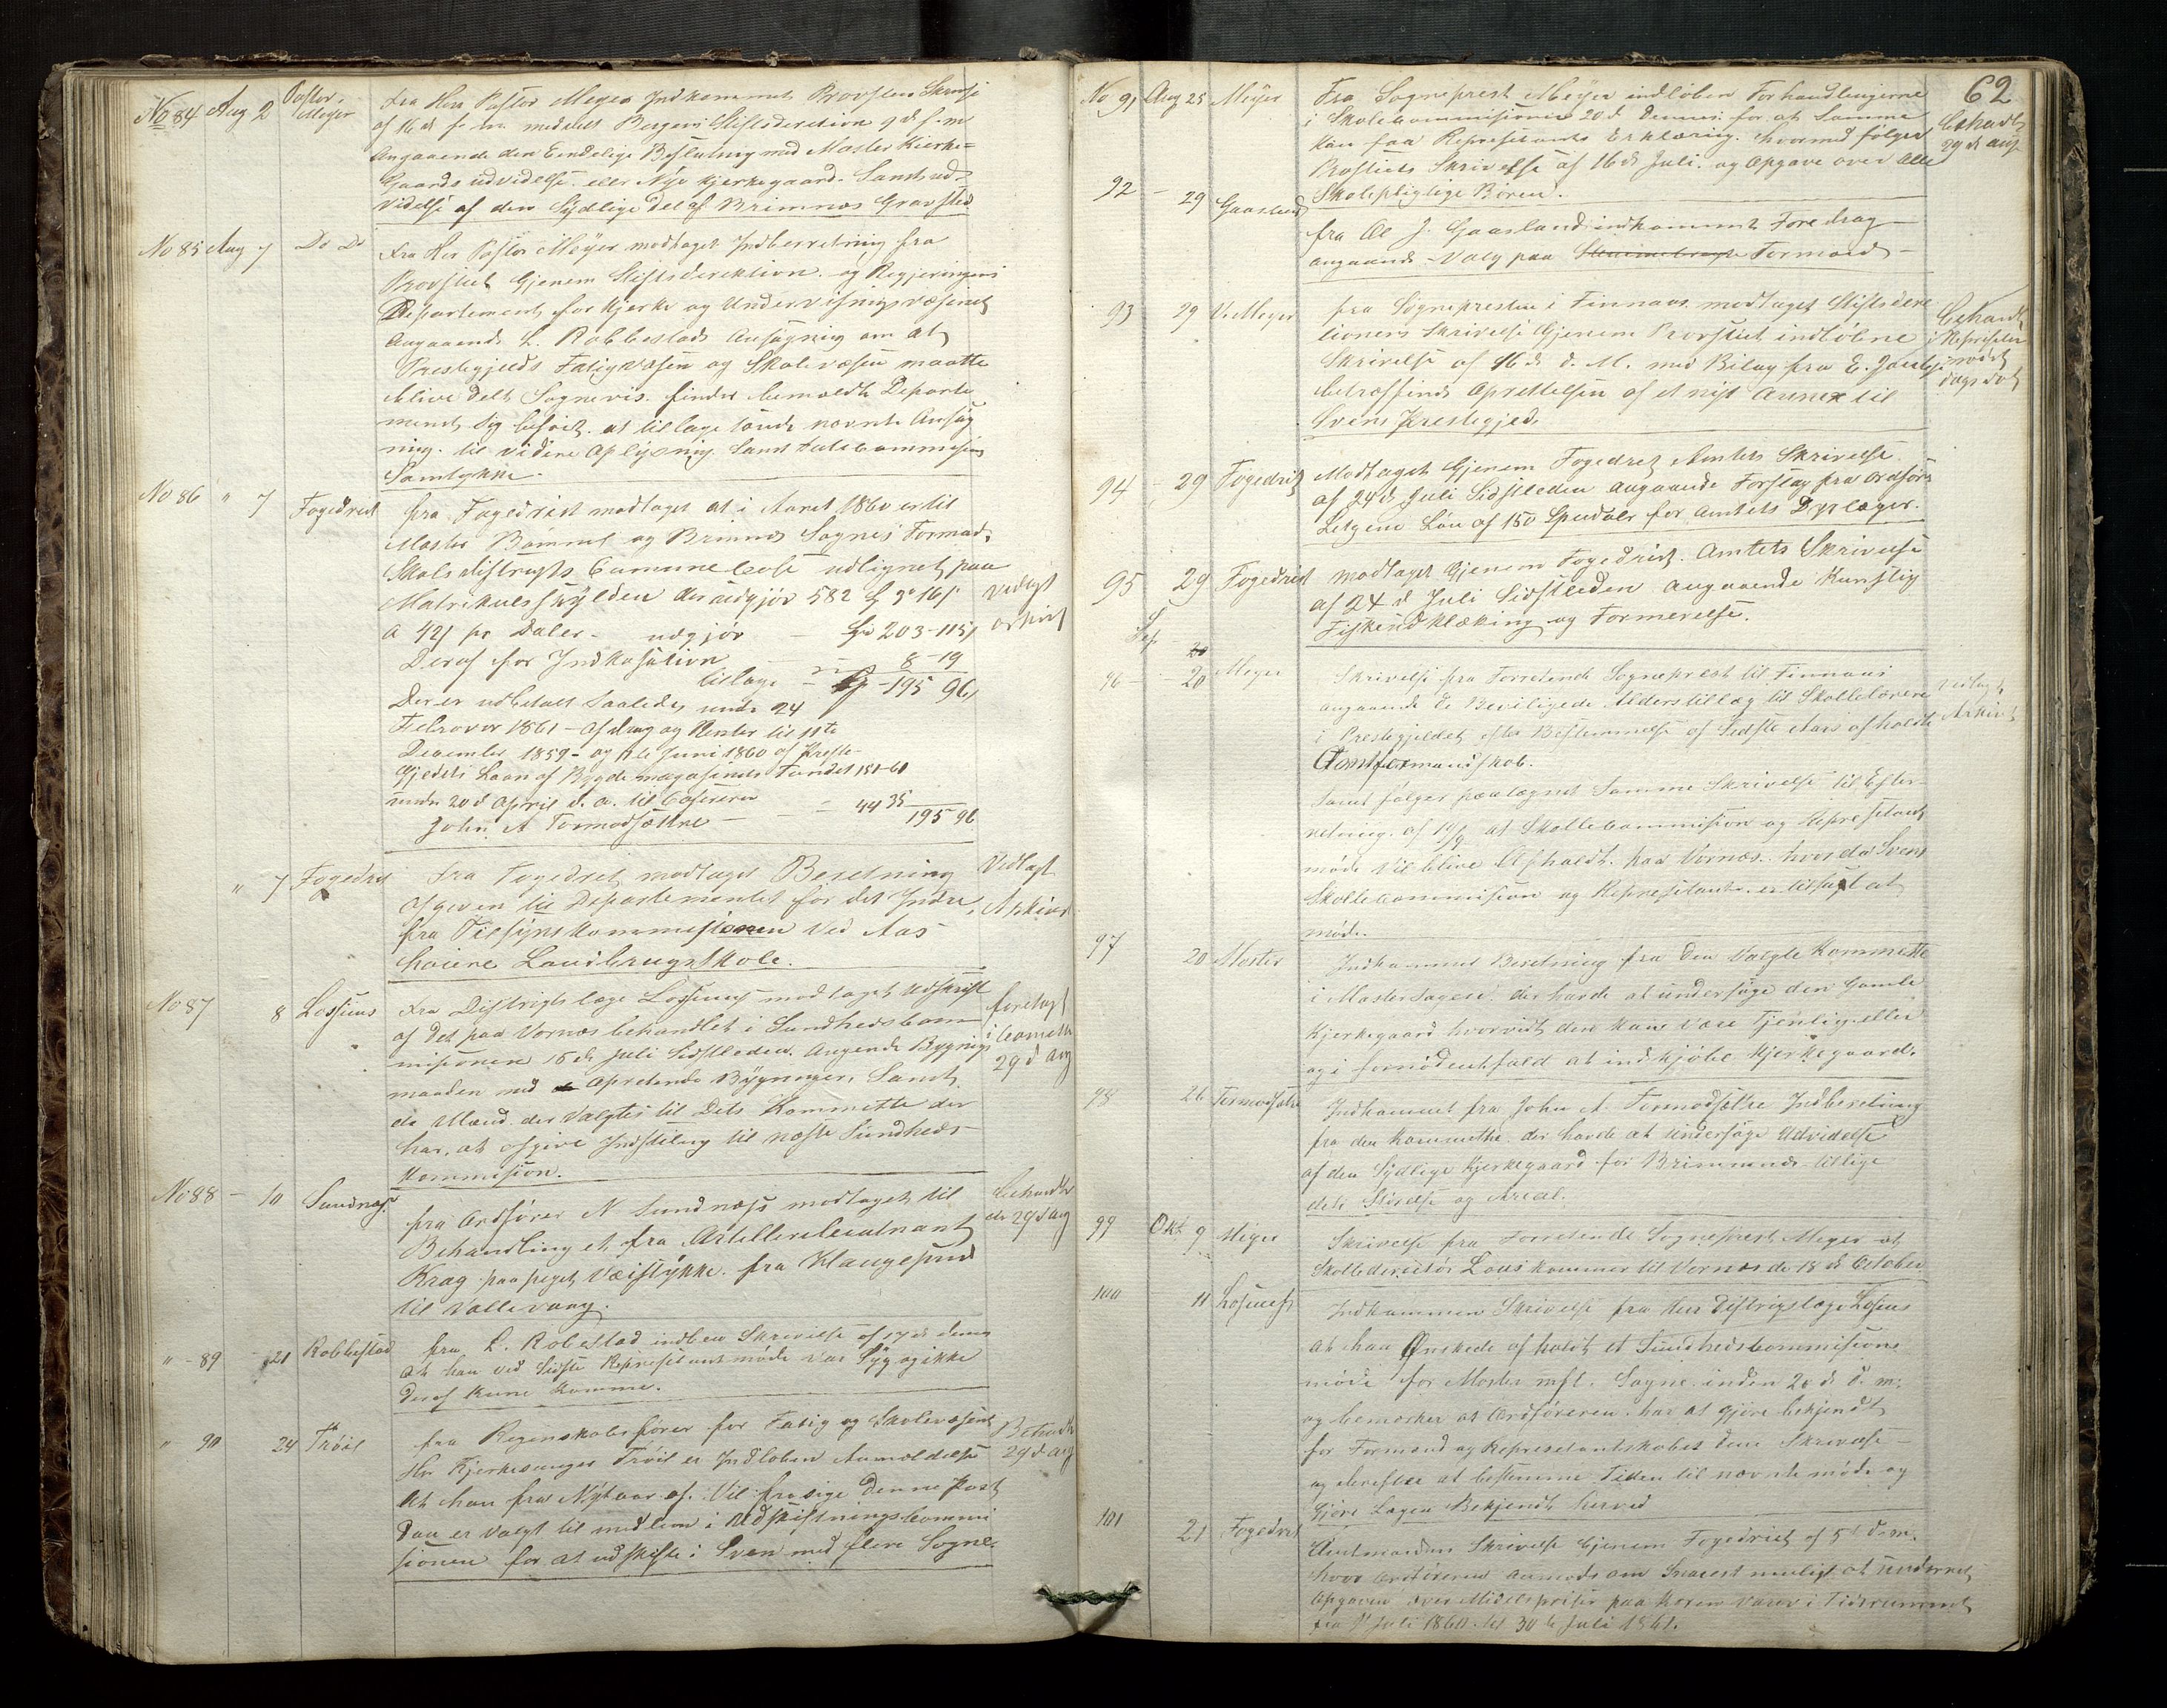 No 84 Aug 2 Pastor Meyer
Fra Herr Pastor Meyer Indkommet Provstens Skrivelse
af 16 d f. m. meddelt Bergens Stiftsdirection 9 d f. m
Angaaende den Eendelige Beslutning med Moster Kierke=
Gaards udvidelse eller Nÿe Kjerkegaard. Samt ud=
videlse af den Sÿdlige Del af Brimnæs Gravsted
No 85 Aug 7 Do Do
Fra Her Pastor Meÿer modtaget Indberretning fra
Provstiet Gjenem Stiftsdirektion og Regjeringens
Departement for Kjerke og Undervisningsvæsenet
Angaaende L. Robbestads Ansøgning om at
Prestegjelds Fatigvæsen og Skolevæsen maatte
blive delt Sognevis. finder bemældte Departe
ment sig beføiet at tilbage sende nævnte Ansøg
ning til videre Oplÿsning Samt
Samtykke.
No 86 " 7 Fogedriet
fra Fogedriet modtaget at i Aaret 1860 er til
Moster Bømmel og Brimnes Sognes Formands
Skolsdistrigts Comunecasse udlignet paa
Matrikulsskÿlden der udgjør 582 3 16
a 42 pr Daler - udgjør 203-115
Deraf for Indkasation 8-19
tilbage - 195 96
Der er udbetalt Saaledes under 24
Februar 1861 - Afdrag og Renter til 11te
December 1859 - og 11te Juni 1860 af Preste-
gjeldets Laan af Bygdemagasinets Fondet 151-61
under 20 d April d. a. til Casereren
John A Tormodsætre - - - 44 35
195 96
vedlagt
arkivet
" 7 Fogedriet
Fra Fogedriet modtaget Beretning
afgiven til Departementet for det Indre
fra Tilsÿnskommisionen ved Aas
høiere Landbrugsskole.
Vedlagt
Arkivet
No 87 8 Lossius
Fra Distrigtslæge Lossius modtaget Udskrift
af det paa Vornæs behandlet i Sundhedscom
misionen 16 de Juli Sidstleden. Angaaende Bygnings
maaden ved Opretende Bÿgninger, Samt
de Mænd der Valgtes til Dets Kommette der
har at afgive Indstiling til næste Sundheds
Kommision.
foretagt
i Comette
29 d Aug
No 88 - 10 Sundnæs
fra Ordfører N Sundnæss modtaget til
Behandling et fra Artilleriløitnant
Krag paapeget Veistÿkke fra Haugesund
til Vallevaag.
behandlet
29 d Aug
" - 89 - 21 Robbestad
fra L. Robestad indløben Skrivelse af 17 d dennes
at han ved Sidste Represetantmøde var Sÿg og ikke
deraf kunne komme.
" 90 24 Trøil
fra Regenskabsfører for Fatig og Skolevæsenet
Hr Kjerkesanger Trøil er Indløben Anmeldelse
At han fra Nÿtaar af. Vil frasige Denne Post
Daa er valgt til medlem i Udskiftningscommi
sionen for at udskifte i Sveen med flere Sogne.
Behandlet
29 d Aug
62
No 91 Aug 25 Meÿer
Fra Sogneprest Meÿer indløben Forhandlingerne
i Skolecommisionen 20 d Dennes for at Samme
kan faa Represetants Erklæring. hvormed følger
Provstiets Skrivelse af 16 d Juli og Opgave over Alle
Skolepligtige Børen.
behandlet
29 d Aug
92 - 29 Gaasland
fra Ole J. Gaasland indkommet Foredrag
angaaende Valg paa Formænd -
93 29 Meyer
fra Sognepresten i Finnaas modtaget Stiftsdirec
tionens Skrivelse Gjenem Provstiet indløbne
Skrivelse af 16 d d. M. med Bilag fra E.
betræffende Oprettelsen af et nÿt Annex til
Sveens Prestegjed.
behandlet
i Represetan
94 - 29 Fogedriet
Modtaget Gjenem Fogedriet Amtets Skrivelse
af 24 d Juli Sidstleden angaaende Forslag fra ordfører
Løn af 150 Spedaler for Amtets Dyrlæger.
95 29 Fogedriet
modtaget Gjenem Fogedriet. Amtets Skrivelse
af 24 d Juli Sidstleden Angaaende Kunstig
Fiskeudklækning og Formerelse.
Sep
96 - 20 Meyer
Skrivelse fra Forretende Sogneprest til Finnaas
angaaende De Bevilgede Alderstillæg til Skollelærere
i Prestegjeldet efter Bestemmelse af Sidste Aars afholdte
Amtformandskab.
Samt følger paategnet Samme Skrivelse til Efter-
retning af 14/9 at Skollecommision og Represetant
møde Vil blive Afholdt paa Vornæs. hvor da Sveens
Skollecommision og Represetanter er tilsagt at
møde.
vedlagt
Arkivet
97 20 Moster
Indkommet Beretning fra den Valgte Kommette
i Moster Sogn der havde at undersøge den Gamle
Kjerkegaard hvorvidt den kan Være Tjenlig eller
og i fornødentfald at indkjøbe Kjerkegaard.
98 26 Tormodsætre
Indkommet fra John A Tormodsætre Indberetning
fra den Kommette der havde at undersøge Udvidelse
af den Sÿdlige Kjerkegaard for Brimnæs tillige
dets Størelse og Areal.
99 Okt 9 Meÿer
Skrivelse fra Forretende Sogneprest Meyer at
Skolledirectør Lous kommer til Vornæs de 18 d October
100 11 Losius
Indkommen Skrivelse fra Herr Distrigslæge Losius
at haa Ønskede afholdt et Sundhedscommisions
møde for Moster mfl. Sogne inden 20 d d. m.
og bemærker at Ordføreren har at gjøre bekjendt
for Formænd og Represetantskabet Denne Skrivelse -
og derefter at bestemme Tiden til nævnte møde og
Gjøre Lægen Bekjendt herved
101 21 Fogedriet
Amtmandens Skrivelse Gjenem Fogedriet af 5 d d. m.
hvor Ordføreren anmodes om Snarest muligt at
Opgaven over Middelpriser paa Koren Varer i Tidsrummet
fra 1 Juli 1860 til 30 te Juli 1861.